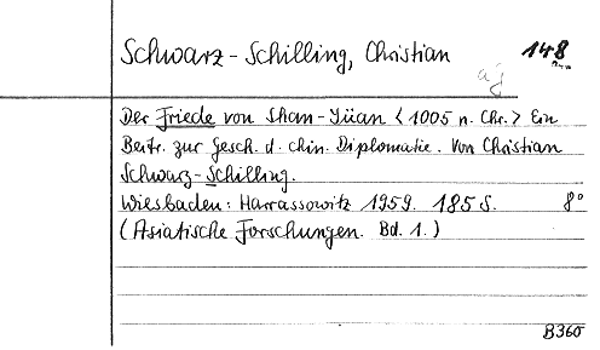 Schwarz-Schilling, Christian 148
aj
Der Friede von Shan-Yüan <1005 n. Chr.> Ein
Beitr. zur Gesch. d. chin. Diplomatie. Von Christian
Schwarz-Schilling.
Wiesbaden: Harrassowitz 1959. 185 S. 8°
(Asiatische Forschungen. Bd. 1.)
B360